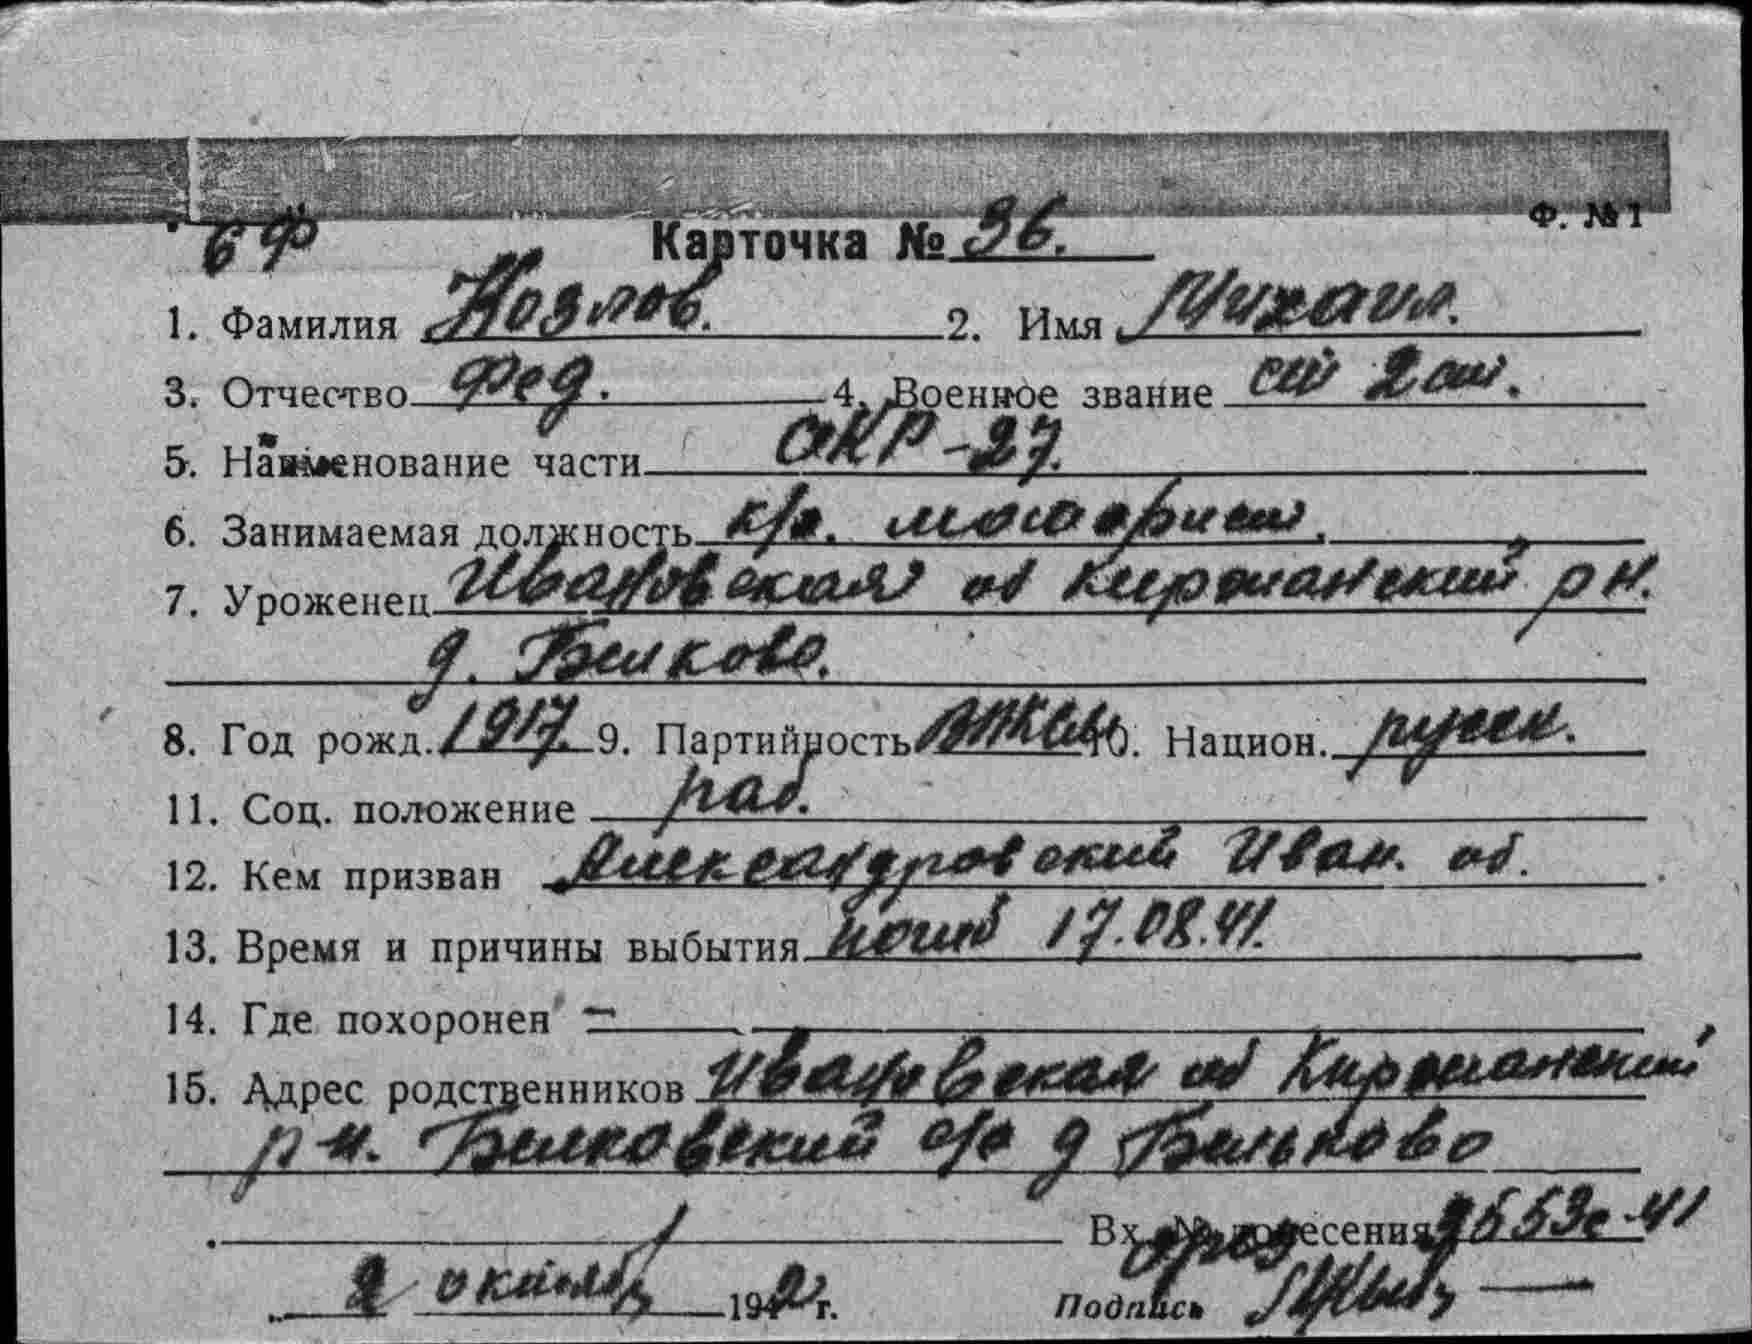 БФ
Ф. №1
Карточка № 36.
1. Фамилия Козлов. 2. Имя Михаил.
3. Отчество Фед. 4. Военное звание ст 2 ст.
5. Наименование части СКР-27.
6. Занимаемая должность к/о. моторист.
7. Уроженец Ивановская об Киржанский р н.
д. Белково.
8. Год рожд. 1917. 9. Партийность ВЛКСМ 10. Национ. русск.
11. Соц. положение раб.
12. Кем призван Александровский Иван. об.
13. Время и причины выбытия погиб 17.08.41.
14. Где похоронен —
15. Адрес родственников Ивановская об Киржанский
р-н. Белковский с/с д Бельково
Вх. № донесения 9553с-41
2 октябр 1942 г. Подпись